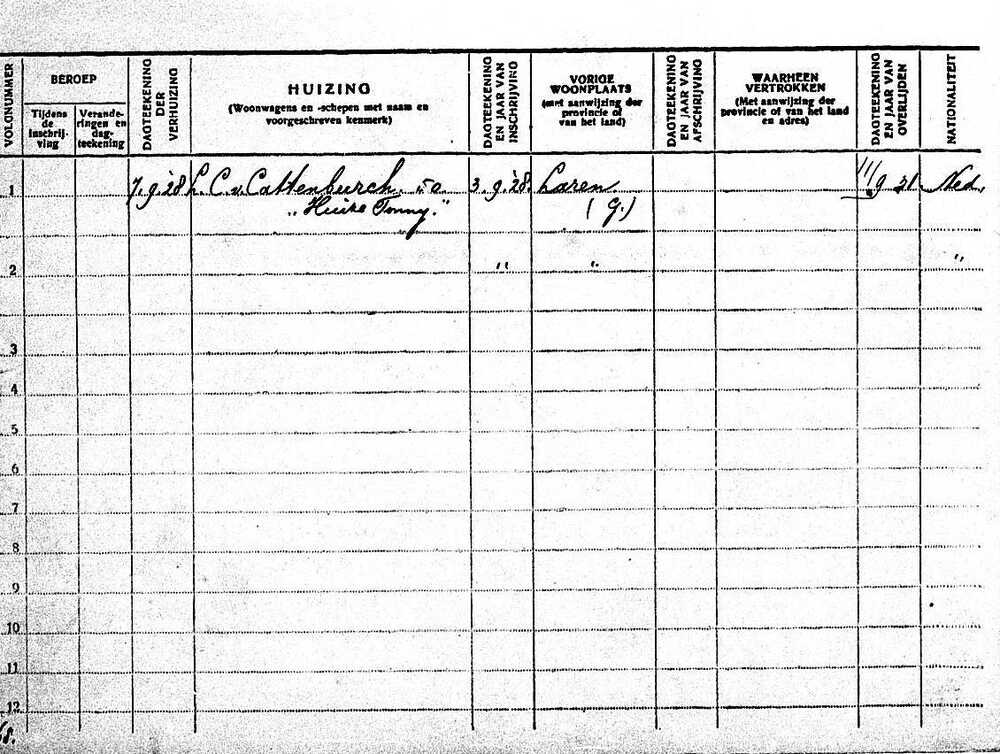 VOLGNUMMER
BEROEP
Tijdens de inschrijving
Veranderingen en dagteekening
DAGTEEKENING DER VERHUIZING
HUIZING
(Woonwagens en -schepen met naam en
voorgeschreven kenmerk)
DAGTEEKENING EN JAAR VAN INSCHRIJVING
VORIGE
WOONPLAATS
(met aanwijzing der
provincie of
van het land)
DAGTEEKENING EN JAAR VAN AFSCHRIJVING
WAARHEEN
VERTROKKEN
(Met aanwijzing der
provincie of van het land
en adres)
DAGTEEKENING EN JAAR VAN OVERLIJDEN
NATIONALITEIT
1 7.9.'28 L. C. v. Cattenburch 50 3.9.'28. Laren 11/9 31 Ned.
"Huize Tonny." (G.)
2 " " "
3
4
5
6
7
8
9
10
11
12